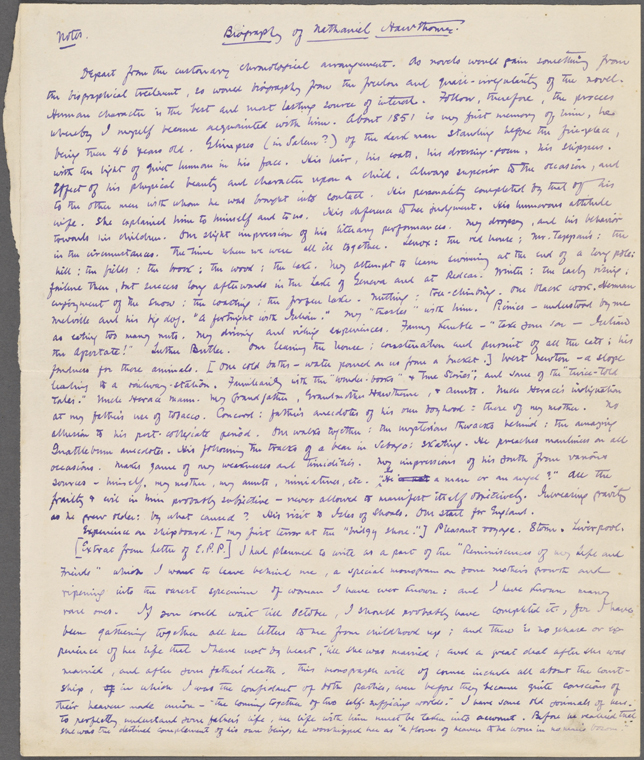 Notes.
Biography of Nathaniel Hawthorne.
Depart from the customary chronological arrangement. As novels would gain something from
the biographical treatment, so would biography from the freedom and quasi-irregularity of the novel.
Human character is the best and most lasting source of interest. Follow, therefore, the process
whereby I myself became acquainted with him. About 1851 is my first memory of him, he
being then 46 years old. Glimpses (in Salem?) of the dark man standing before the fire-place,
with the light of quiet humor in his face. His hair, his coats, his dressing-gown, his slippers.
Effect of his physical beauty and character upon a child. Always superior to the occasion, and
to the other men with whom he was brought into contact. His personality completed by that of his
wife. She explained him to himself and to us. His deference to her judgment. His humorous attitude
towards his children. Our slight impression of his literary performances. My dropsy, and his behavior
in the circumstances. The time when we were all ill together. Lenox: the red house; Mr. Tappan's: the
hill: the fields: the brook; the wood: the lake. My attempt to learn swimming at the end of a long pole:
failure then, but success long afterwards in the Lake of Geneva and at Redcar. Winter: the early rising.
enjoyment of the snow: the coasting: the frozen lake. Nutting: tree-climbing. One black worm. Herman
Melville and his big dog. "A fortnight with Julian." My "battles" with him. Picnics - understood by me
as eating too many nuts. My driving and riding experiences. Fanny Kemble - "take your son - Julian
the Apostate!" Luther Butler. Our leaving the house; consternation and pursuit of all the cats; his
fondness for those animals. [One cold baths - water poured on us from a bucket.] West Newton - a slope
leading to a railway-station. Familiarity with the "wonder-books" & "True Stories", and some of the "twice-told
tales." Uncle Horace Mann. My grandfather, Grandmother Hawthorne, & Aunts. Uncle Horace's indignation
at my father's use of tobacco. Concord: father's anecdotes of his own boyhood: there of my mother. No
allusion to his post-collegiate period. Our walks together: the mysterious thwacks behind: the amazing
anecdotes. His following the tracks of a bear in Sebago: skating. He preaches manliness on all
occasions. Makes game of my weaknesses and timidities. My impressions of his youth from various
sources - himself, my mother, my aunts, miniatures, etc. "Is he a man or an angel?" All the
frailty & evil in him probably subjective - never allowed to manifest itself objectively. Increasing gravity
as he grew older: by what caused? His visit to Isles of Shoals. Our start for England.
Experience on shipboard. [My first terror at the "bridgy shore."] Pleasant voyage. Storm. Liverpool.
[Extract from letter of E.P.P.] I had planned to write as a part of the "Reminiscences of my Life and
Friends" which I want to leave behind me, a special monogram on your mother's growth and
ripening into the rarest specimen of woman I have ever known: and I have known many
rare ones. If you could wait till October, I should probably have completed it, for I have
been gathering together all her letters to me from childhood up; and there is no phase or ex-
perience of her life that I have not by heart, till she was married; and a great deal after she was
married, and after your father's death. This monogram will of course include all about the court-
ship, in which I was the confidant of both parties, even before they became quite conscious of
their heaven-made union - "the coming together of two self-sufficing worlds." I have some old journals of hers.
To perfectly understand your father's life, her life with him must be taken into account. Before he realized that
she was the destined complement of his own being, he worshipped her as "a flower of heaven to be worn in no man's bosom"